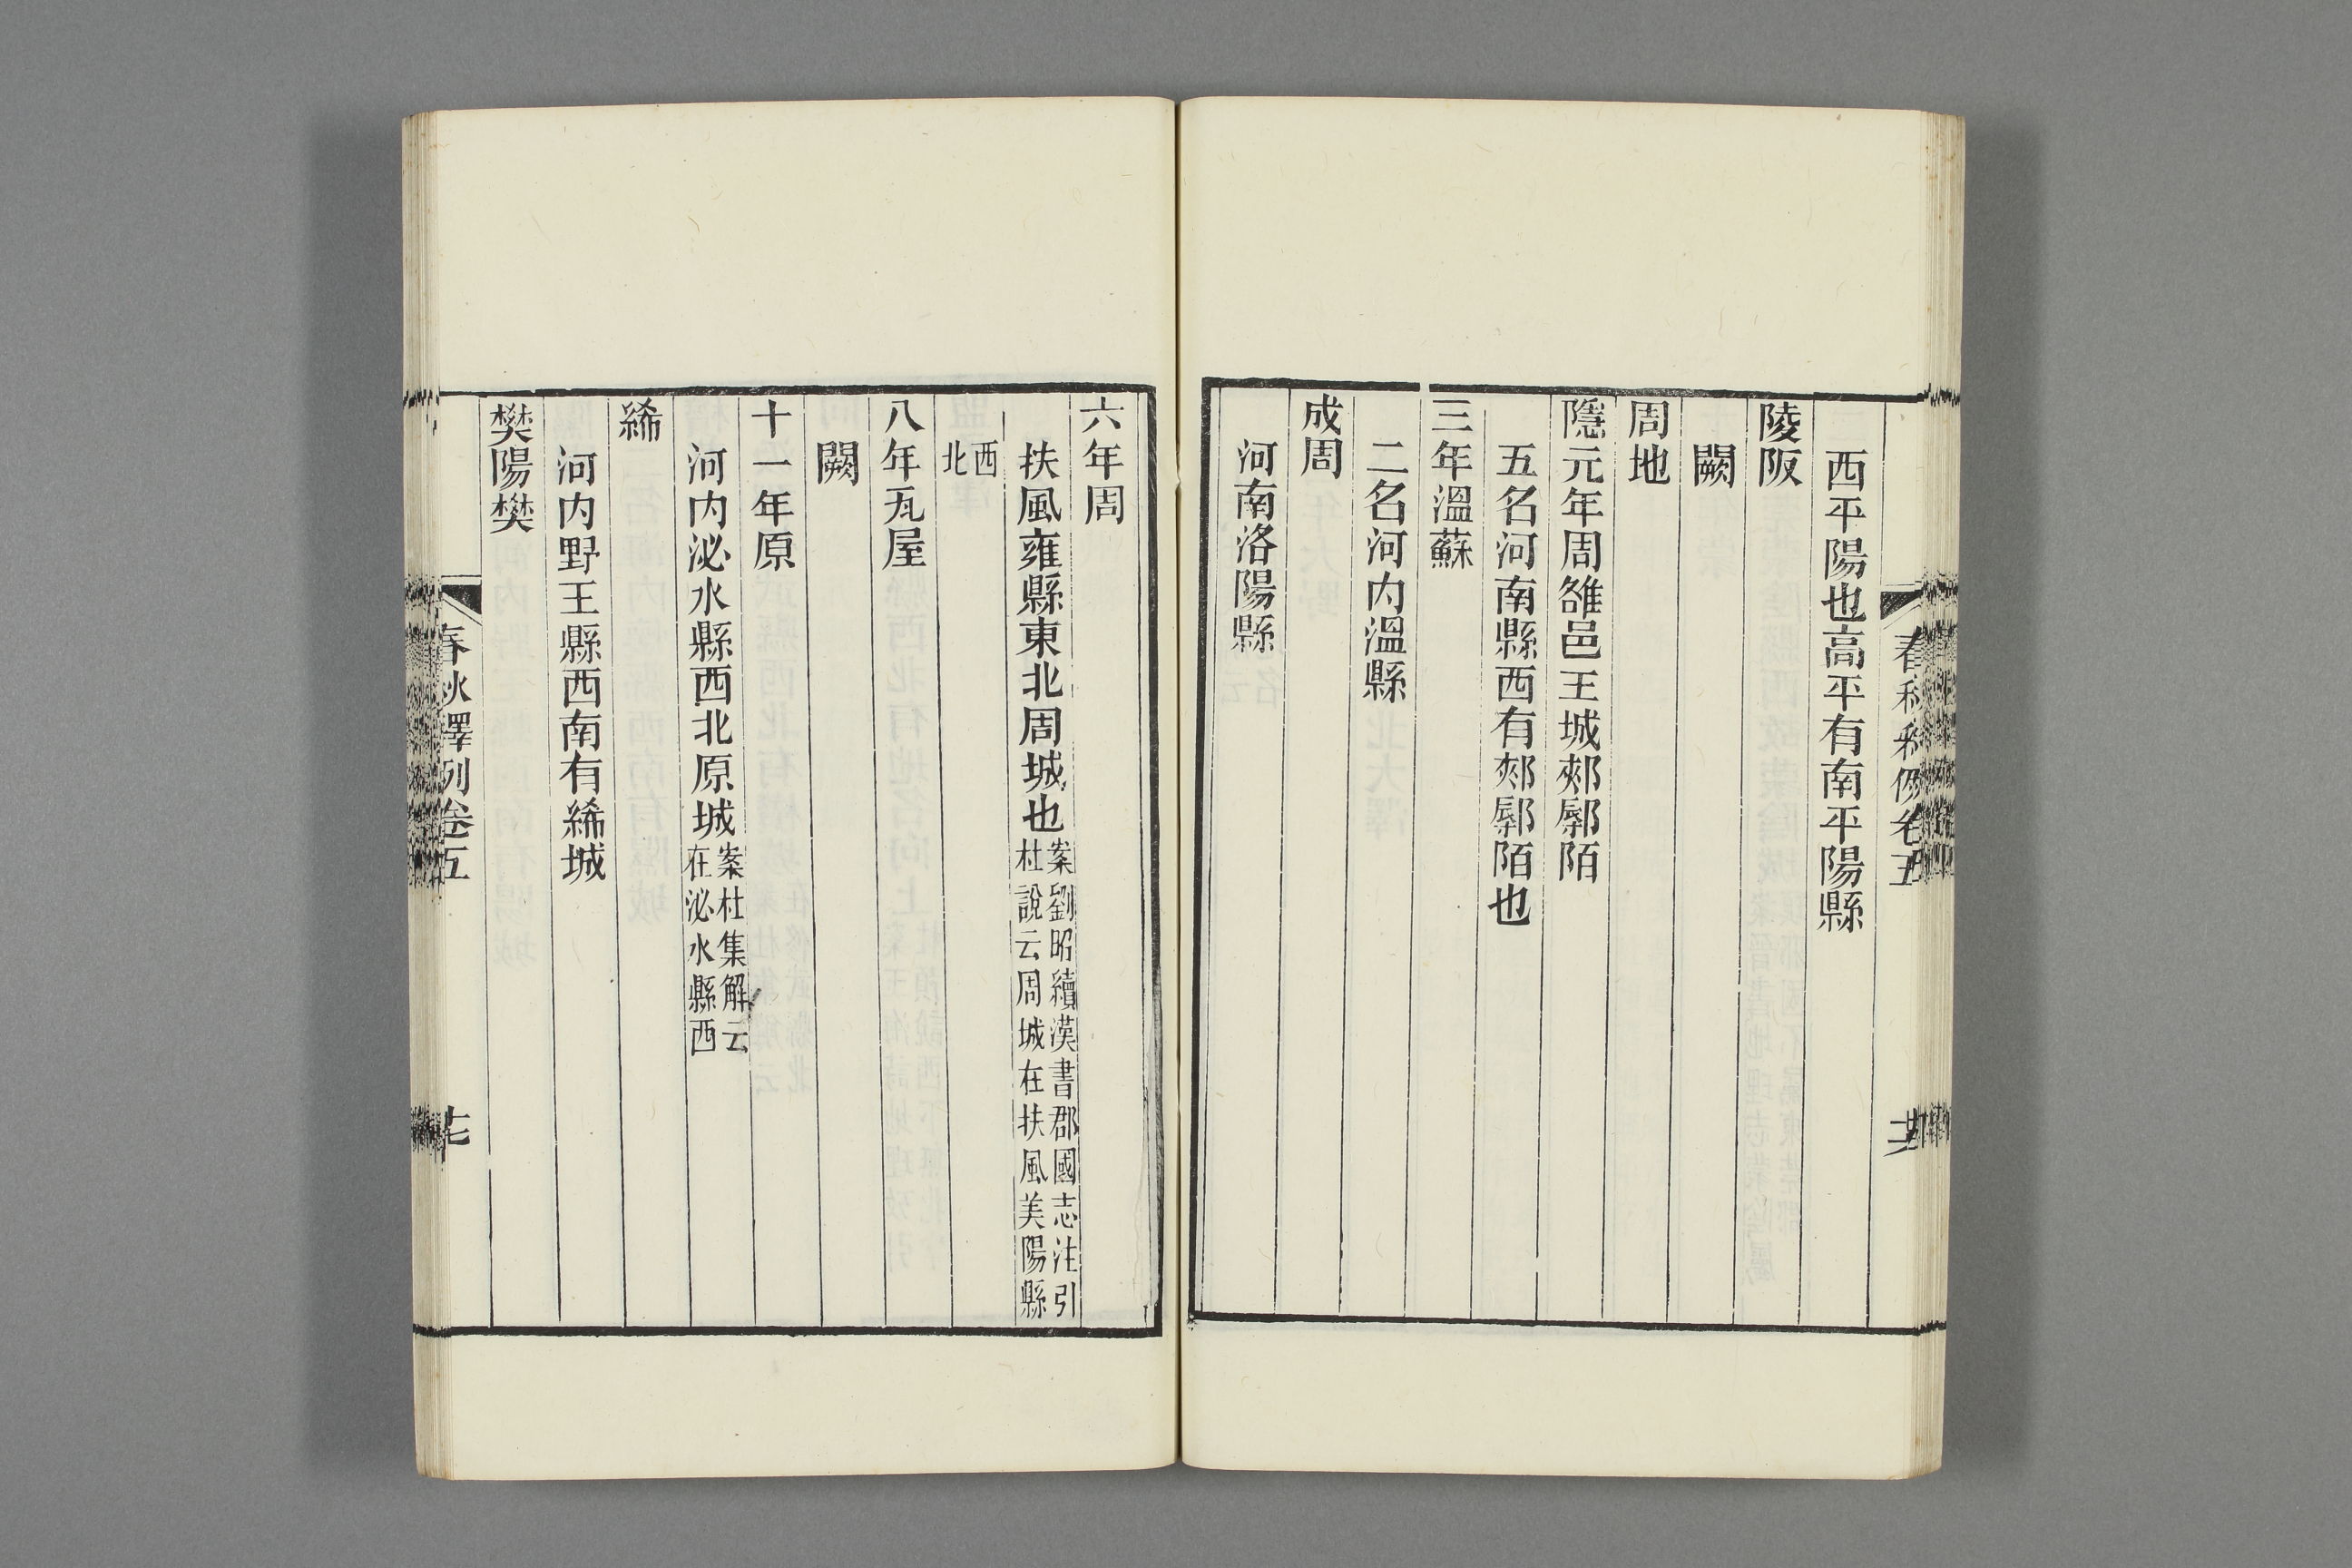 西平陽也高平有南平陽縣
陵阪
闕
周地
隱元年周雒邑王城郟鄏陌
五名河南縣西有郟鄏陌也
三年溫蘇
二名河内溫縣
成周
河南洛陽縣
六年周
扶風雍縣東北周城也案劉昭續漢書郡國志注引
杜說云周城在扶風美陽縣
西
北
八年瓦屋
闕
十一年原
河内泌水縣西北原城案杜集解云
在泌水縣西
絺
河内野王縣西南有絺城
樊陽樊
春秋釋例卷五